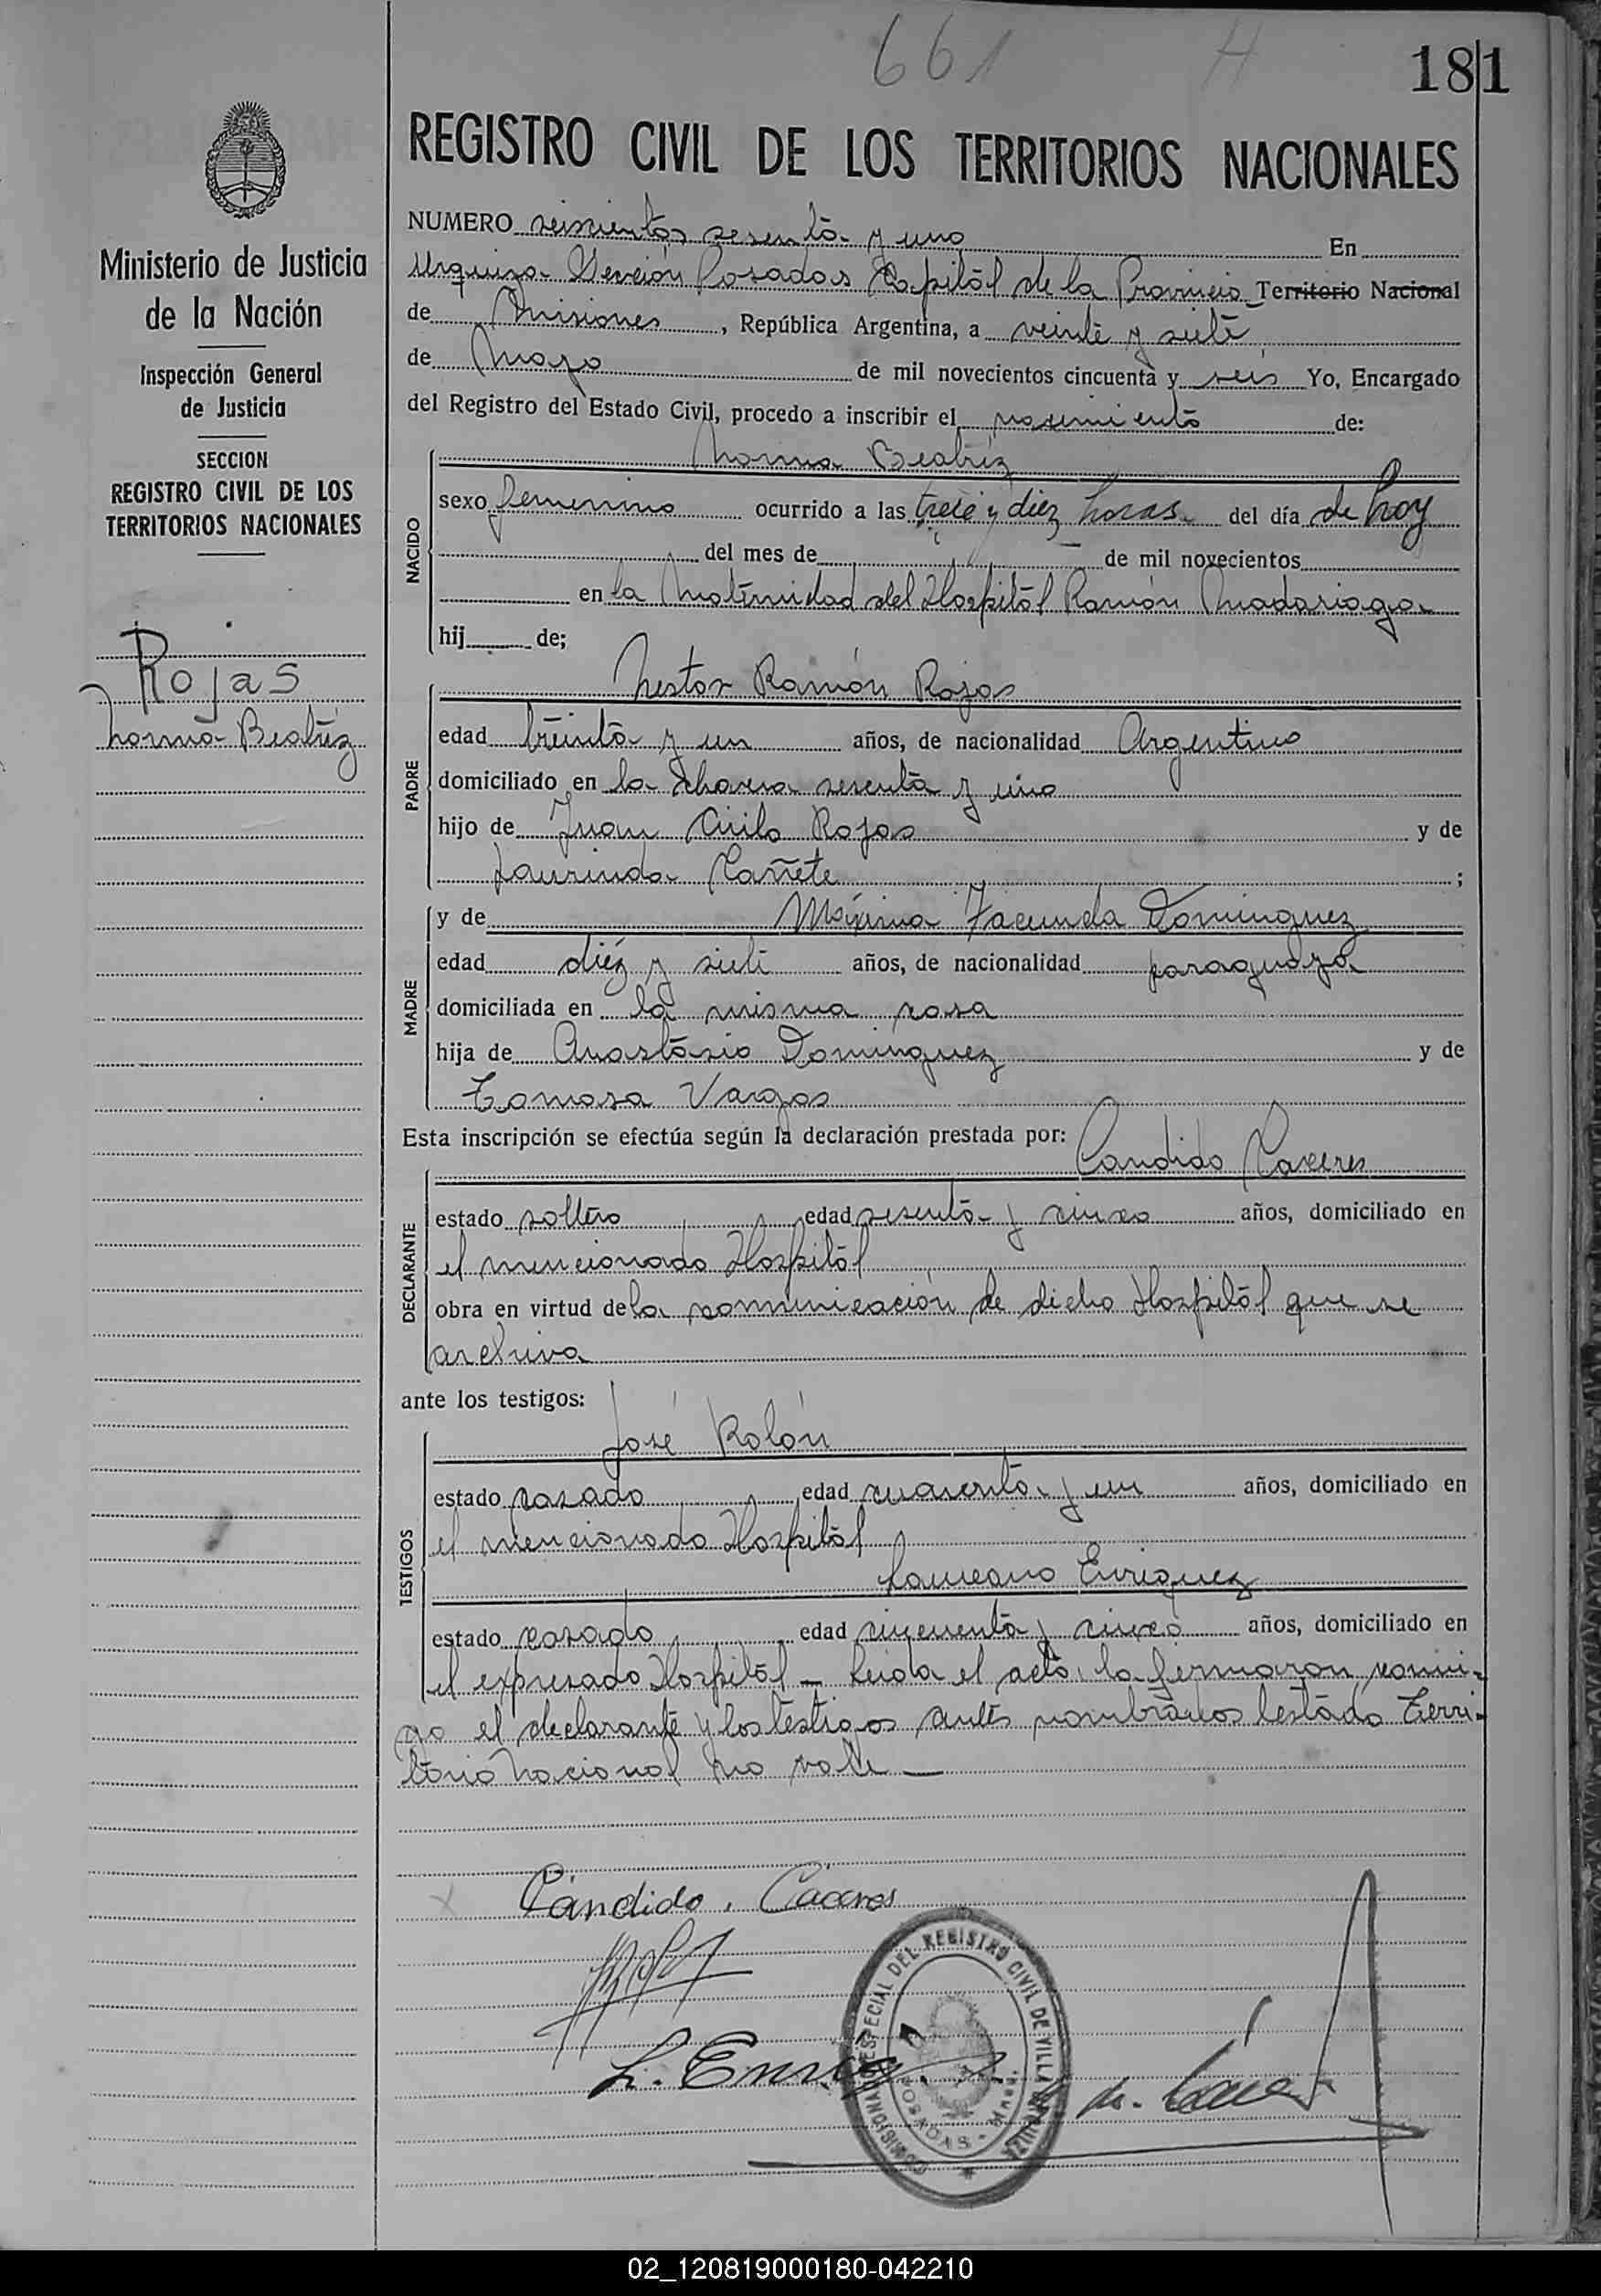 661 H 181
Ministerio de Justicia
de la Nación
Inspección General
de Justicia
SECCION
REGISTRO CIVIL DE LOS
TERRITORIOS NACIONALES
Rojas
Norma Beatriz
REGISTRO CIVIL DE LOS TERRITORIOS NACIONALES
NUMERO seiscientos sesenta y uno En
Urquiza Sección Posadas Capital de la Provincia Territorio Nacional
de Misiones, República Argentina, a veinte y siete
de Mayo de mil novecientos cincuenta y seis Yo, Encargado
del Registro del Estado Civil, procedo a inscribir el nacimiento de:
NACIDO
Norma Beatriz
sexo femenino ocurrido a las trece y diez horas del día de hoy
del mes de de mil novecientos
en la Maternidad del Hospital Ramón Madariaga
hij de;
PADRE
Nestor Ramón Rojas
edad treinta y un años, de nacionalidad Argentino
domiciliado en la chacra sesenta y uno
hijo de Juan Cirilo Rojas y de
Laurinda Cañete ;
MADRE
y de Máxima Facunda Dominguez
edad diéz y siete años, de nacionalidad paraguaya
domiciliada en la misma casa
hija de Anastasio Dominguez y de
Tomasa Vargas
Esta inscripción se efectúa según la declaración prestada por:
DECLARANTE
Candido Caceres
estado soltero edad sesenta y cinco años, domiciliado en
el mencionado Hospital
obra en virtud de la comunicación de dicho Hospital que se
archiva
ante los testigos:
TESTIGOS
José Rolón
estado casado edad cuarenta y un años, domiciliado en
el mencionado Hospital
Laureano Enriquez
estado casado edad cincuenta y cinco años, domiciliado en
el expresado Hospital – Leida el acta, la firmaron conmi-
go el declarante y los testigos antes nombrados testado Terri-
torio Nacional no vale –
Cándido. Cáceres
L. Enriq
COMISIONADO ESPECIAL DEL REGISTRO CIVIL DE VILLA URQUIZA
POSADAS - Mnes.
02_120819000180-042210